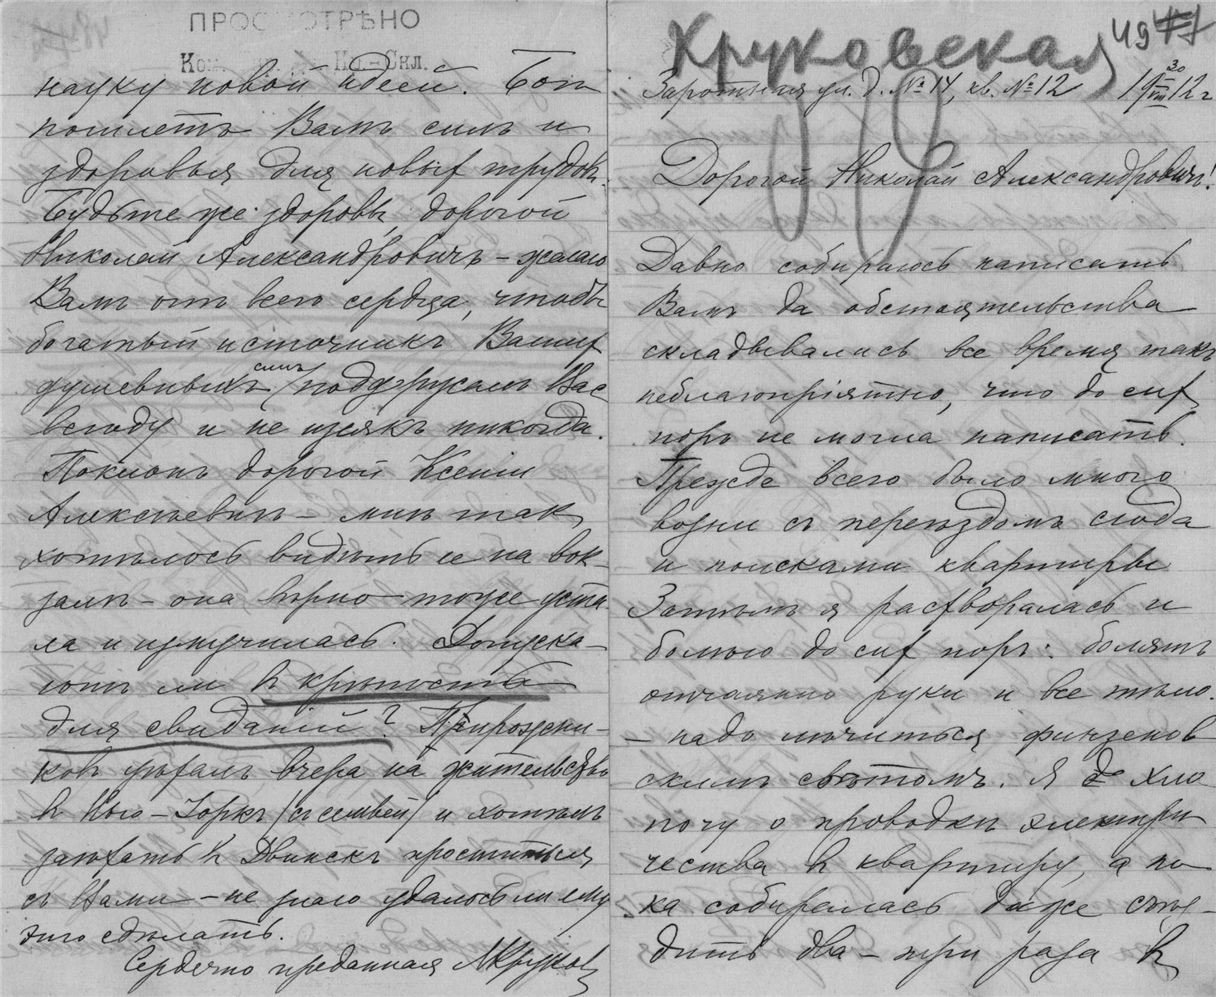 ПРОСМОТРѢНО
науку новой идеей. Богъ
пошлетъ Вамъ силъ и
здоровья для новых трудовъ.
Будьте же здоровы, дорогой
Николай Александровичъ – желаю
Вамъ отъ всего сердца, чтобы
богатый источникъ Вашихъ
душевныхъ силъ поддержалъ Вас
всюду и не изсякъ никогда.
Поклонъ дорогой Ксеніи
Алексѣевнѣ – мнѣ так
хотѣлось видѣть ее на вок-
залѣ – она вѣрно тоже уста-
ла и измучилась. Допуска-
ютъ ли в крѣпость
для свиданій? Прирождни-
ковъ уѣхалъ вчера на жительство
в Нью-Іоркъ (съ семьей) и хотѣлъ
заѣхать в Двинскъ проститься
съ Вами – не знаю удалось ли ему
это сдѣлать.
Сердечно преданная МКруков
Круковская 49
ул. д. № 14, кв. № 12 19 30/III 12 г
Дорогой Николай Александровичъ!
Давно собираюсь написать
Вамъ да обстоятельства
складывались все время такъ
неблагопріятно, что до сих
поръ не могла написать.
Прежде всего было много
возни съ переѣздомъ сюда
и поисками квартиры
Затѣмъ я расхворалась и
болѣю до сих поръ: болятъ
отчаянно руки и все тѣло.
– надо лечиться финзенов
скимъ свѣтомъ. Я хло
почу о проводкѣ электри
чества в квартиру, а по
ка собиралась даже съѣз-
дить два – три раза в